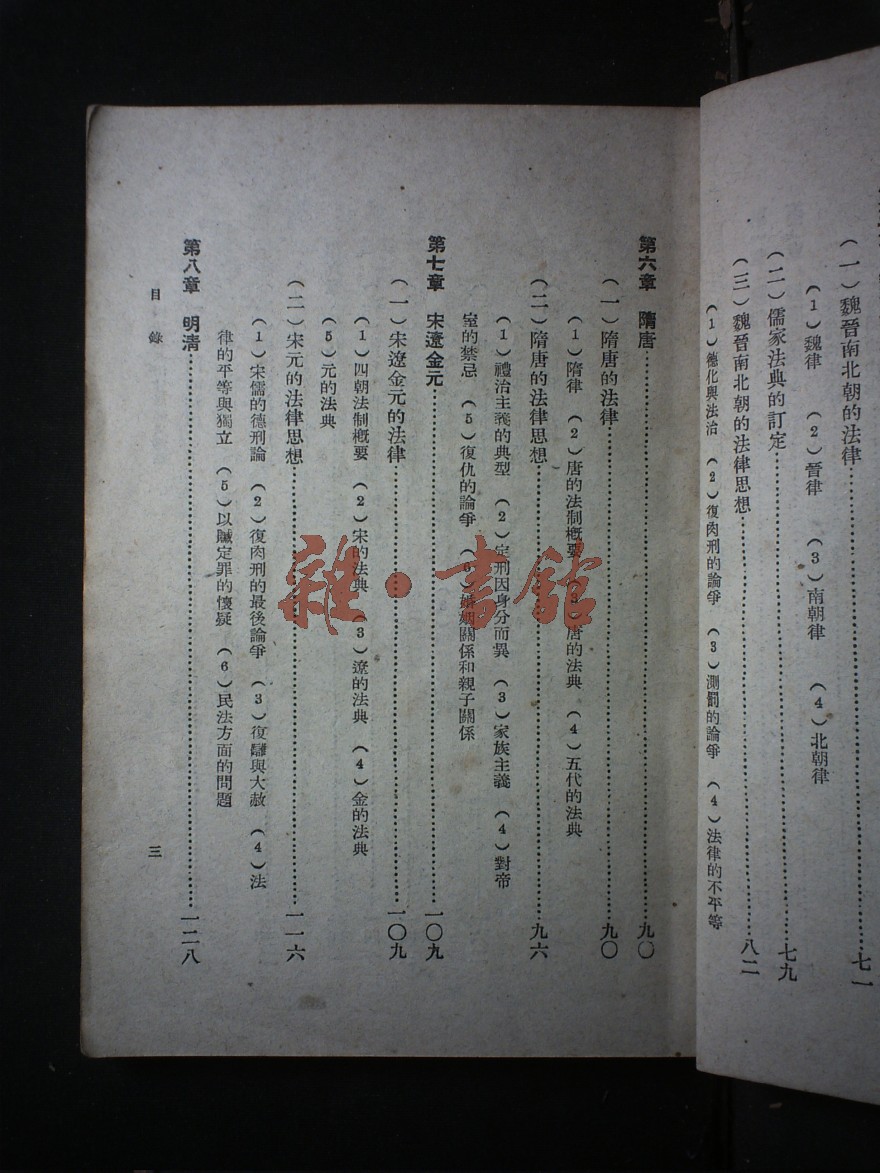 (一)魏晉南北朝的法律……七一
(1)魏律 (2)晉律 (3)南朝律 (4)北朝律
(二)儒家法典的訂定……七九
(三)魏晉南北朝的法律思想……八二
(1)德化與法治 (2)復肉刑的論爭 (3)測罰的論爭 (4)法律的不平等
第六章 隋唐……九〇
(一)隋唐的法律……九〇
(1)隋律 (2)唐的法制概要 (3)唐的法典 (4)五代的法典
(二)隋唐的法律思想……九六
(1)禮治主義的典型 (2)定刑因身分而異 (3)家族主義 (4)對帝
室的禁忌 (5)復仇的論爭 (6)婚姻關係和親子關係
第七章 宋遼金元……一〇九
(一)宋遼金元的法律……一〇九
(1)四朝法制概要 (2)宋的法典 (3)遼的法典 (4)金的法典
(5)元的法典
(二)宋元的法律思想……一一六
(1)宋儒的德刑論 (2)復肉刑的最後論爭 (3)復讎與大赦 (4)法
律的平等與獨立 (5)以贓定罪的懷疑 (6)民法方面的問題
第八章 明清……一二八
目錄
三
雜·書館